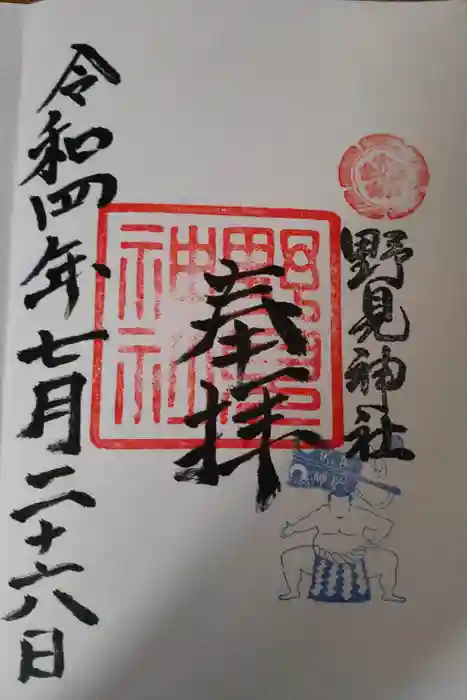 野見神社
奉拝
野見
神社
令和四年七月二十六日